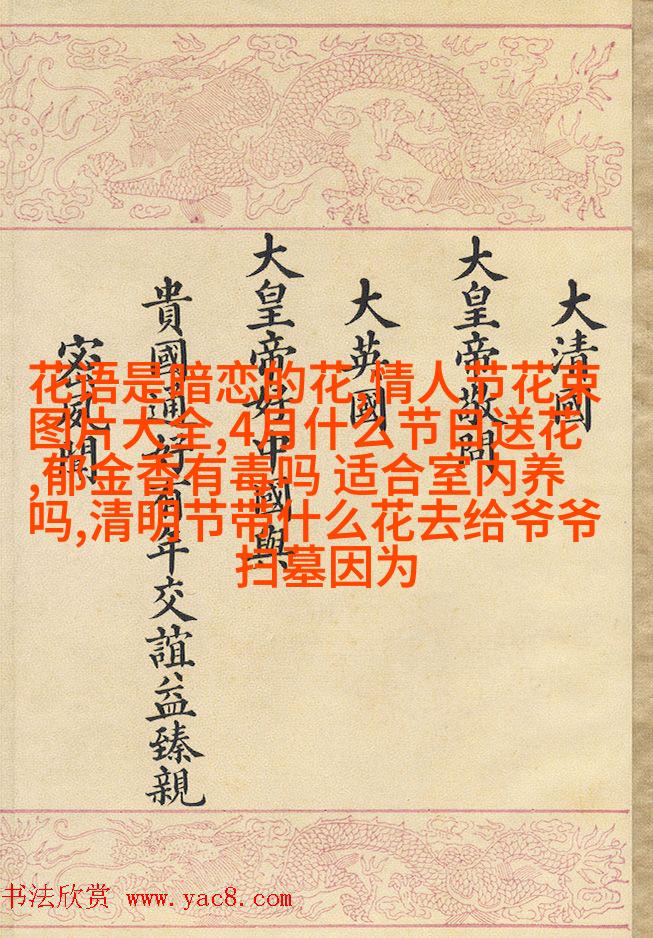 大清國
大皇帝敬問
大英國
大皇帝好中國與
貴國通好有年交誼益臻親
密夙
花语是暗恋的花,情人节花束
图片大全,4月什么节日送花
,郁金香有毒吗 适合室内养
吗,清明节带什么花去给爷爷
扫墓因为
书法欣赏 www.yac8.com